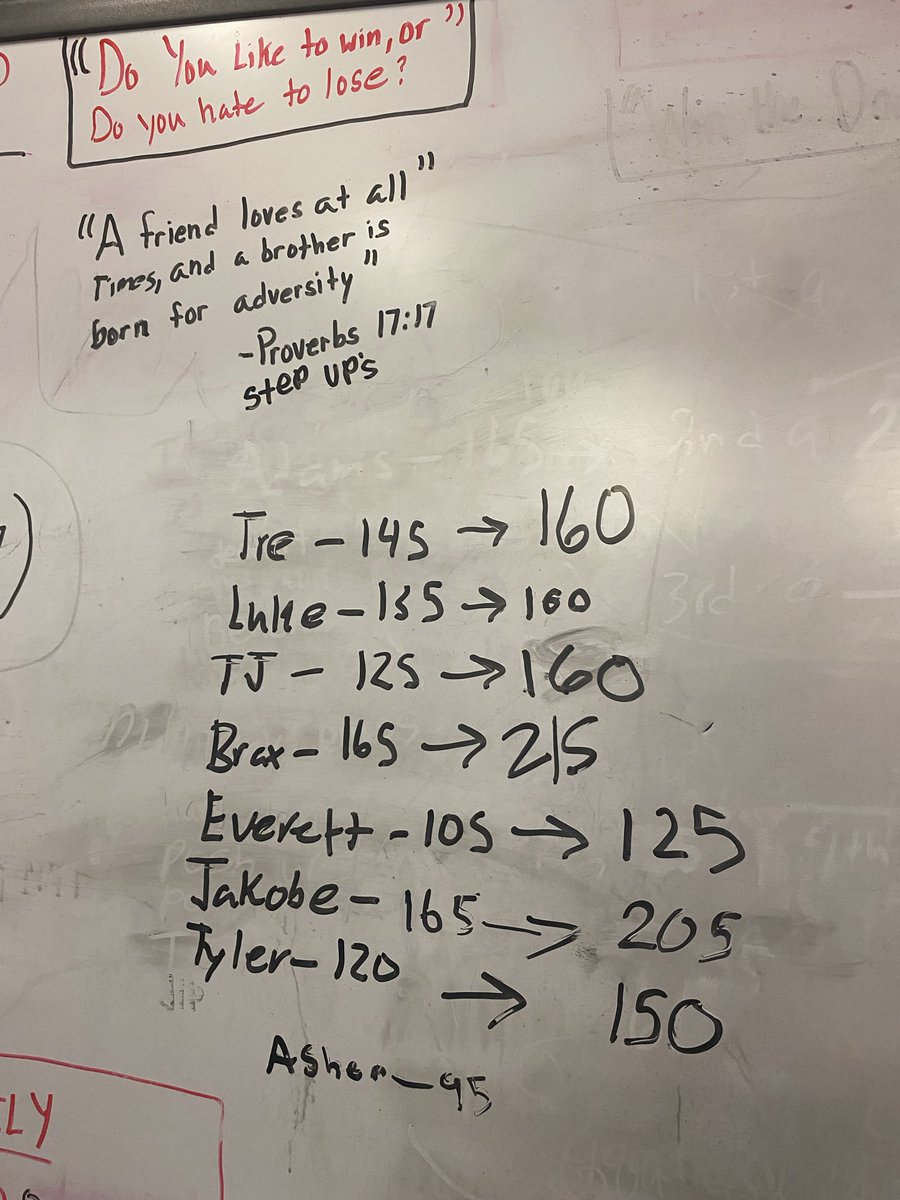 "Do You Like to win, or"
Do you hate to lose?
"Win the Da
"A friend loves at all"
Times, and a brother is
born for adversity"
-Proverbs 17:17
step up's
Adams - 165 → 2nd a 2
Tre - 145 → 160
3rd a
Luke - 135 → 160
TJ - 125 → 160
Brax - 165 → 215
Everett - 105 → 125
Jakobe - 165 → 205
Tyler - 120 → 150
Asher - 95
LY